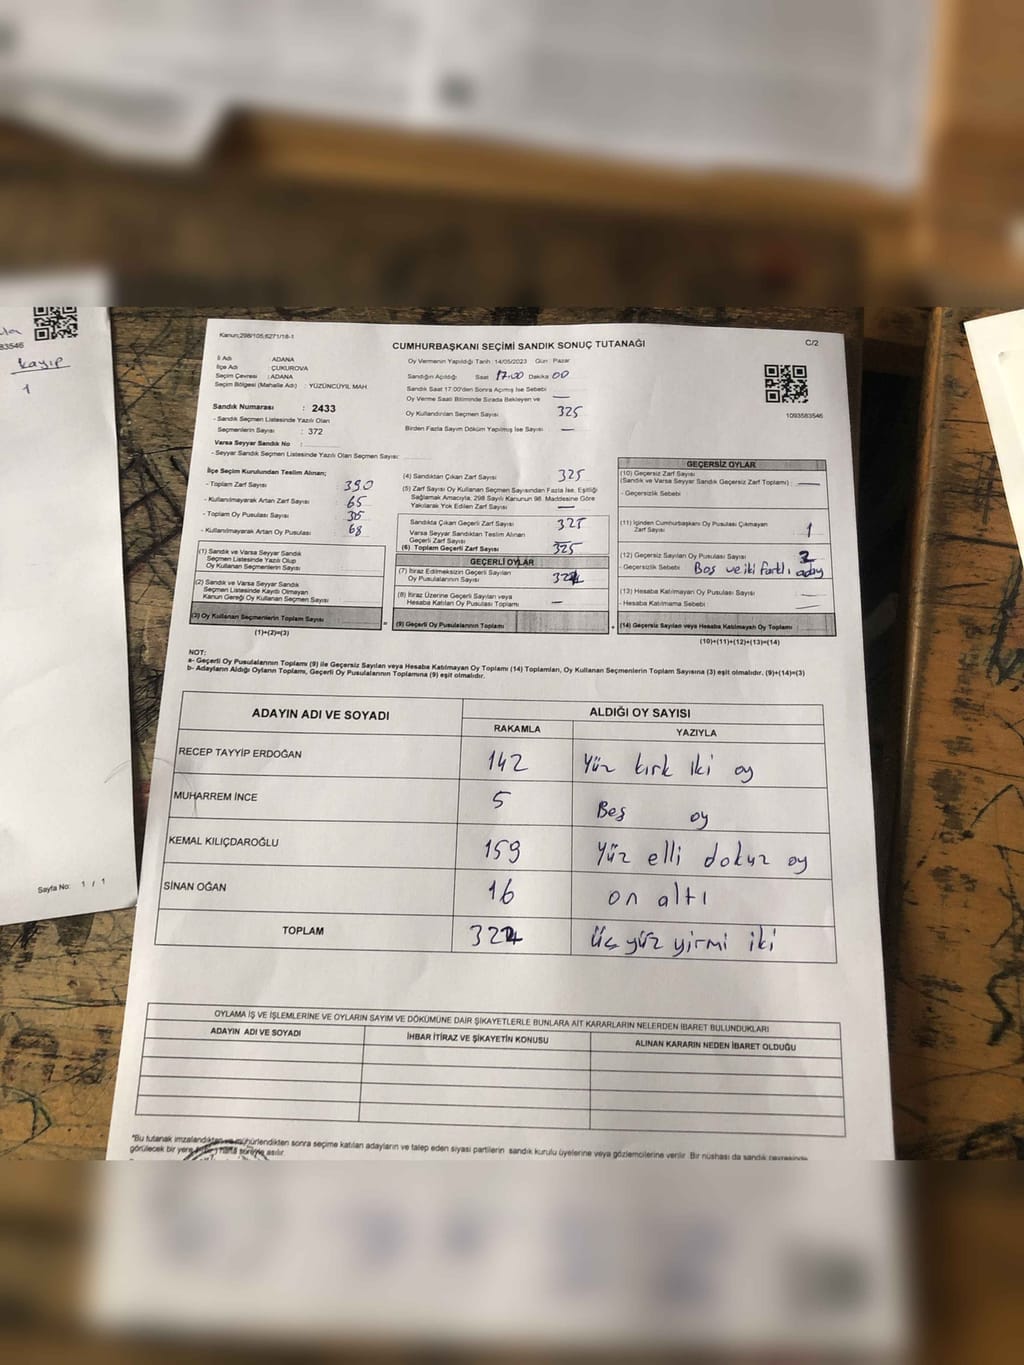 83546
kayıp
1
Sayfa No: 1 / 1
Kanun;298/105;6271/18-1
CUMHURBAŞKANI SEÇİMİ SANDIK SONUÇ TUTANAĞI
C/2
İl Adı : ADANA
İlçe Adı : ÇUKUROVA
Seçim Çevresi : ADANA
Seçim Bölgesi (Mahalle Adı) : YÜZÜNCÜYIL MAH.
Sandık Numarası : 2433
- Sandık Seçmen Listesinde Yazılı Olan
Seçmenlerin Sayısı : 372
Varsa Seyyar Sandık No :
- Seyyar Sandık Seçmen Listesinde Yazılı Olan Seçmen Sayısı:
Oy Vermenin Yapıldığı Tarih :14/05/2023 Gün : Pazar
Sandığın Açıldığı Saat 17:00 Dakika 00
Sandık Saat 17:00'den Sonra Açılmış İse Sebebi
Oy Verme Saati Bitiminde Sırada Bekleyen ve —
Oy Kullandırılan Seçmen Sayısı 325
Birden Fazla Sayım Döküm Yapılmış İse Sayısı —
1093583546
İlçe Seçim Kurulundan Teslim Alınan;
- Toplam Zarf Sayısı 390
- Kullanılmayarak Artan Zarf Sayısı 65
- Toplam Oy Pusulası Sayısı
- Kullanılmayarak Artan Oy Pusulası 68
(1) Sandık ve Varsa Seyyar Sandık
Seçmen Listesinde Yazılı Olup
Oy Kullanan Seçmenlerin Sayısı
(2) Sandık ve Varsa Seyyar Sandık
Seçmen Listesinde Kayıtlı Olmayan
Kanun Gereği Oy Kullanan Seçmen Sayısı
(3) Oy Kullanan Seçmenlerin Toplam Sayısı
(1)+(2)=(3)
(4) Sandıktan Çıkan Zarf Sayısı 325
(5) Zarf Sayısı Oy Kullanan Seçmen Sayısından Fazla İse, Eşitliği
Sağlamak Amacıyla; 298 Sayılı Kanunun 98. Maddesine Göre
Yakılarak Yok Edilen Zarf Sayısı —
Sandıkta Çıkan Geçerli Zarf Sayısı 325
Varsa Seyyar Sandıktan Teslim Alınan
Geçerli Zarf Sayısı —
(6) Toplam Geçerli Zarf Sayısı 325
GEÇERLİ OYLAR
(7) İtiraz Edilmeksizin Geçerli Sayılan
Oy Pusulalarının Sayısı 322
(8) İtiraz Üzerine Geçerli Sayılan veya
Hesaba Katılan Oy Pusulası Toplamı —
= (9) Geçerli Oy Pusulalarının Toplamı
GEÇERSİZ OYLAR
(10) Geçersiz Zarf Sayısı
(Sandık ve Varsa Seyyar Sandık Geçersiz Zarf Toplamı) : —
- Geçersizlik Sebebi
(11) İçinden Cumhurbaşkanı Oy Pusulası Çıkmayan
Zarf Sayısı 1
(12) Geçersiz Sayılan Oy Pusulası Sayısı 2
- Geçersizlik Sebebi Boş ve iki farklı aday
(13) Hesaba Katılmayan Oy Pusulası Sayısı —
- Hesaba Katılmama Sebebi —
+ (14) Geçersiz Sayılan veya Hesaba Katılmayan Oy Toplamı
(10)+(11)+(12)+(13)=(14)
NOT:
a- Geçerli Oy Pusulalarının Toplamı (9) ile Geçersiz Sayılan veya Hesaba Katılmayan Oy Toplamı (14) Toplamları, Oy Kullanan Seçmenlerin Toplam Sayısına (3) eşit olmalıdır. (9)+(14)=(3)
b- Adayların Aldığı Oyların Toplamı, Geçerli Oy Pusulalarının Toplamına (9) eşit olmalıdır.
ADAYIN ADI VE SOYADI ALDIĞI OY SAYISI
RAKAMLA YAZIYLA
RECEP TAYYİP ERDOĞAN 142 Yüz kırk iki oy
MUHARREM İNCE 5 Beş oy
KEMAL KILIÇDAROĞLU 159 Yüz elli dokuz oy
SİNAN OĞAN 16 on altı
TOPLAM 322 Üç yüz yirmi iki
OYLAMA İŞ VE İŞLEMLERİNE VE OYLARIN SAYIM VE DÖKÜMÜNE DAİR ŞİKAYETLERLE BUNLARA AİT KARARLARIN NELERDEN İBARET BULUNDUKLARI
ADAYIN ADI VE SOYADI İHBAR İTİRAZ VE ŞİKAYETİN KONUSU ALINAN KARARIN NEDEN İBARET OLDUĞU
*Bu tutanak imzalandıktan ve mühürlendikten sonra seçime katılan adayların ve talep eden siyasi partilerin sandık kurulu üyelerine veya gözlemcilerine verilir. Bir nüshası da sandık çevresinde
görülecek bir yere hafta süreyle asılır.